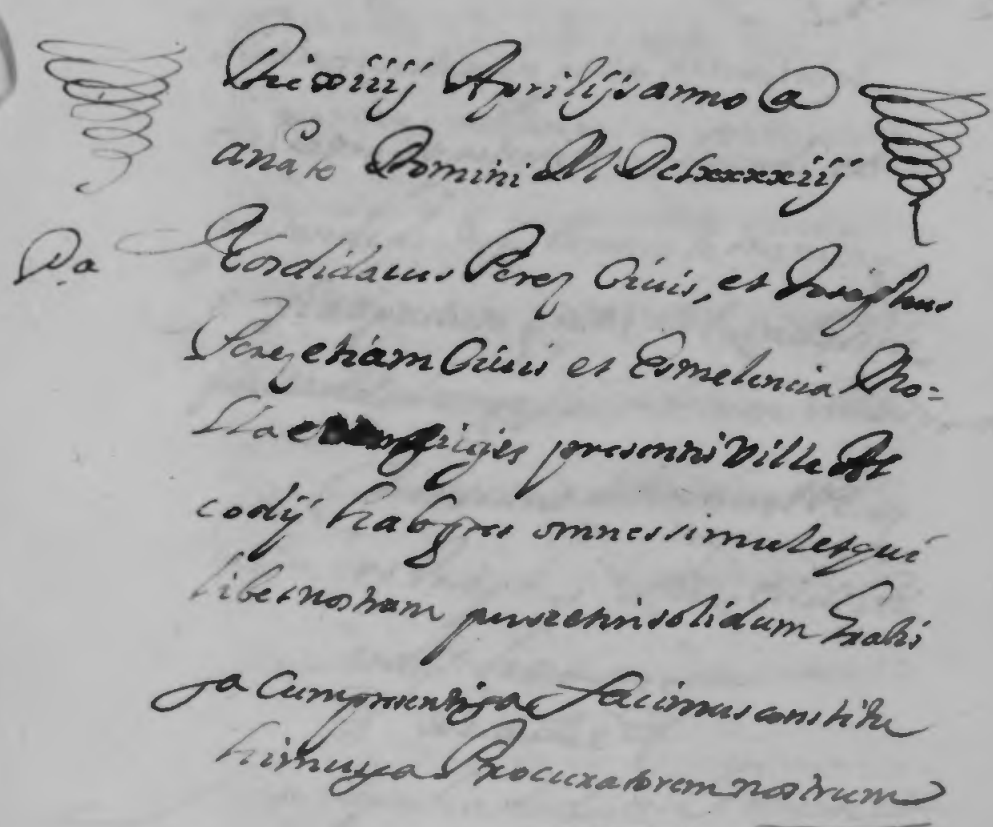 Die xiiij Aprilijs anno a
a nato Domini M Dclxxxxiij
Pa Perez Civis, et Josephus
Perez etiam Civis et Esmelencia Mo=
lla presentis Ville Al
codij habres omnes simul et qui
libet nostrum et in solidum gratis
ga cum presenti ga facimus constitu
himus ga Procuratorem nostrum